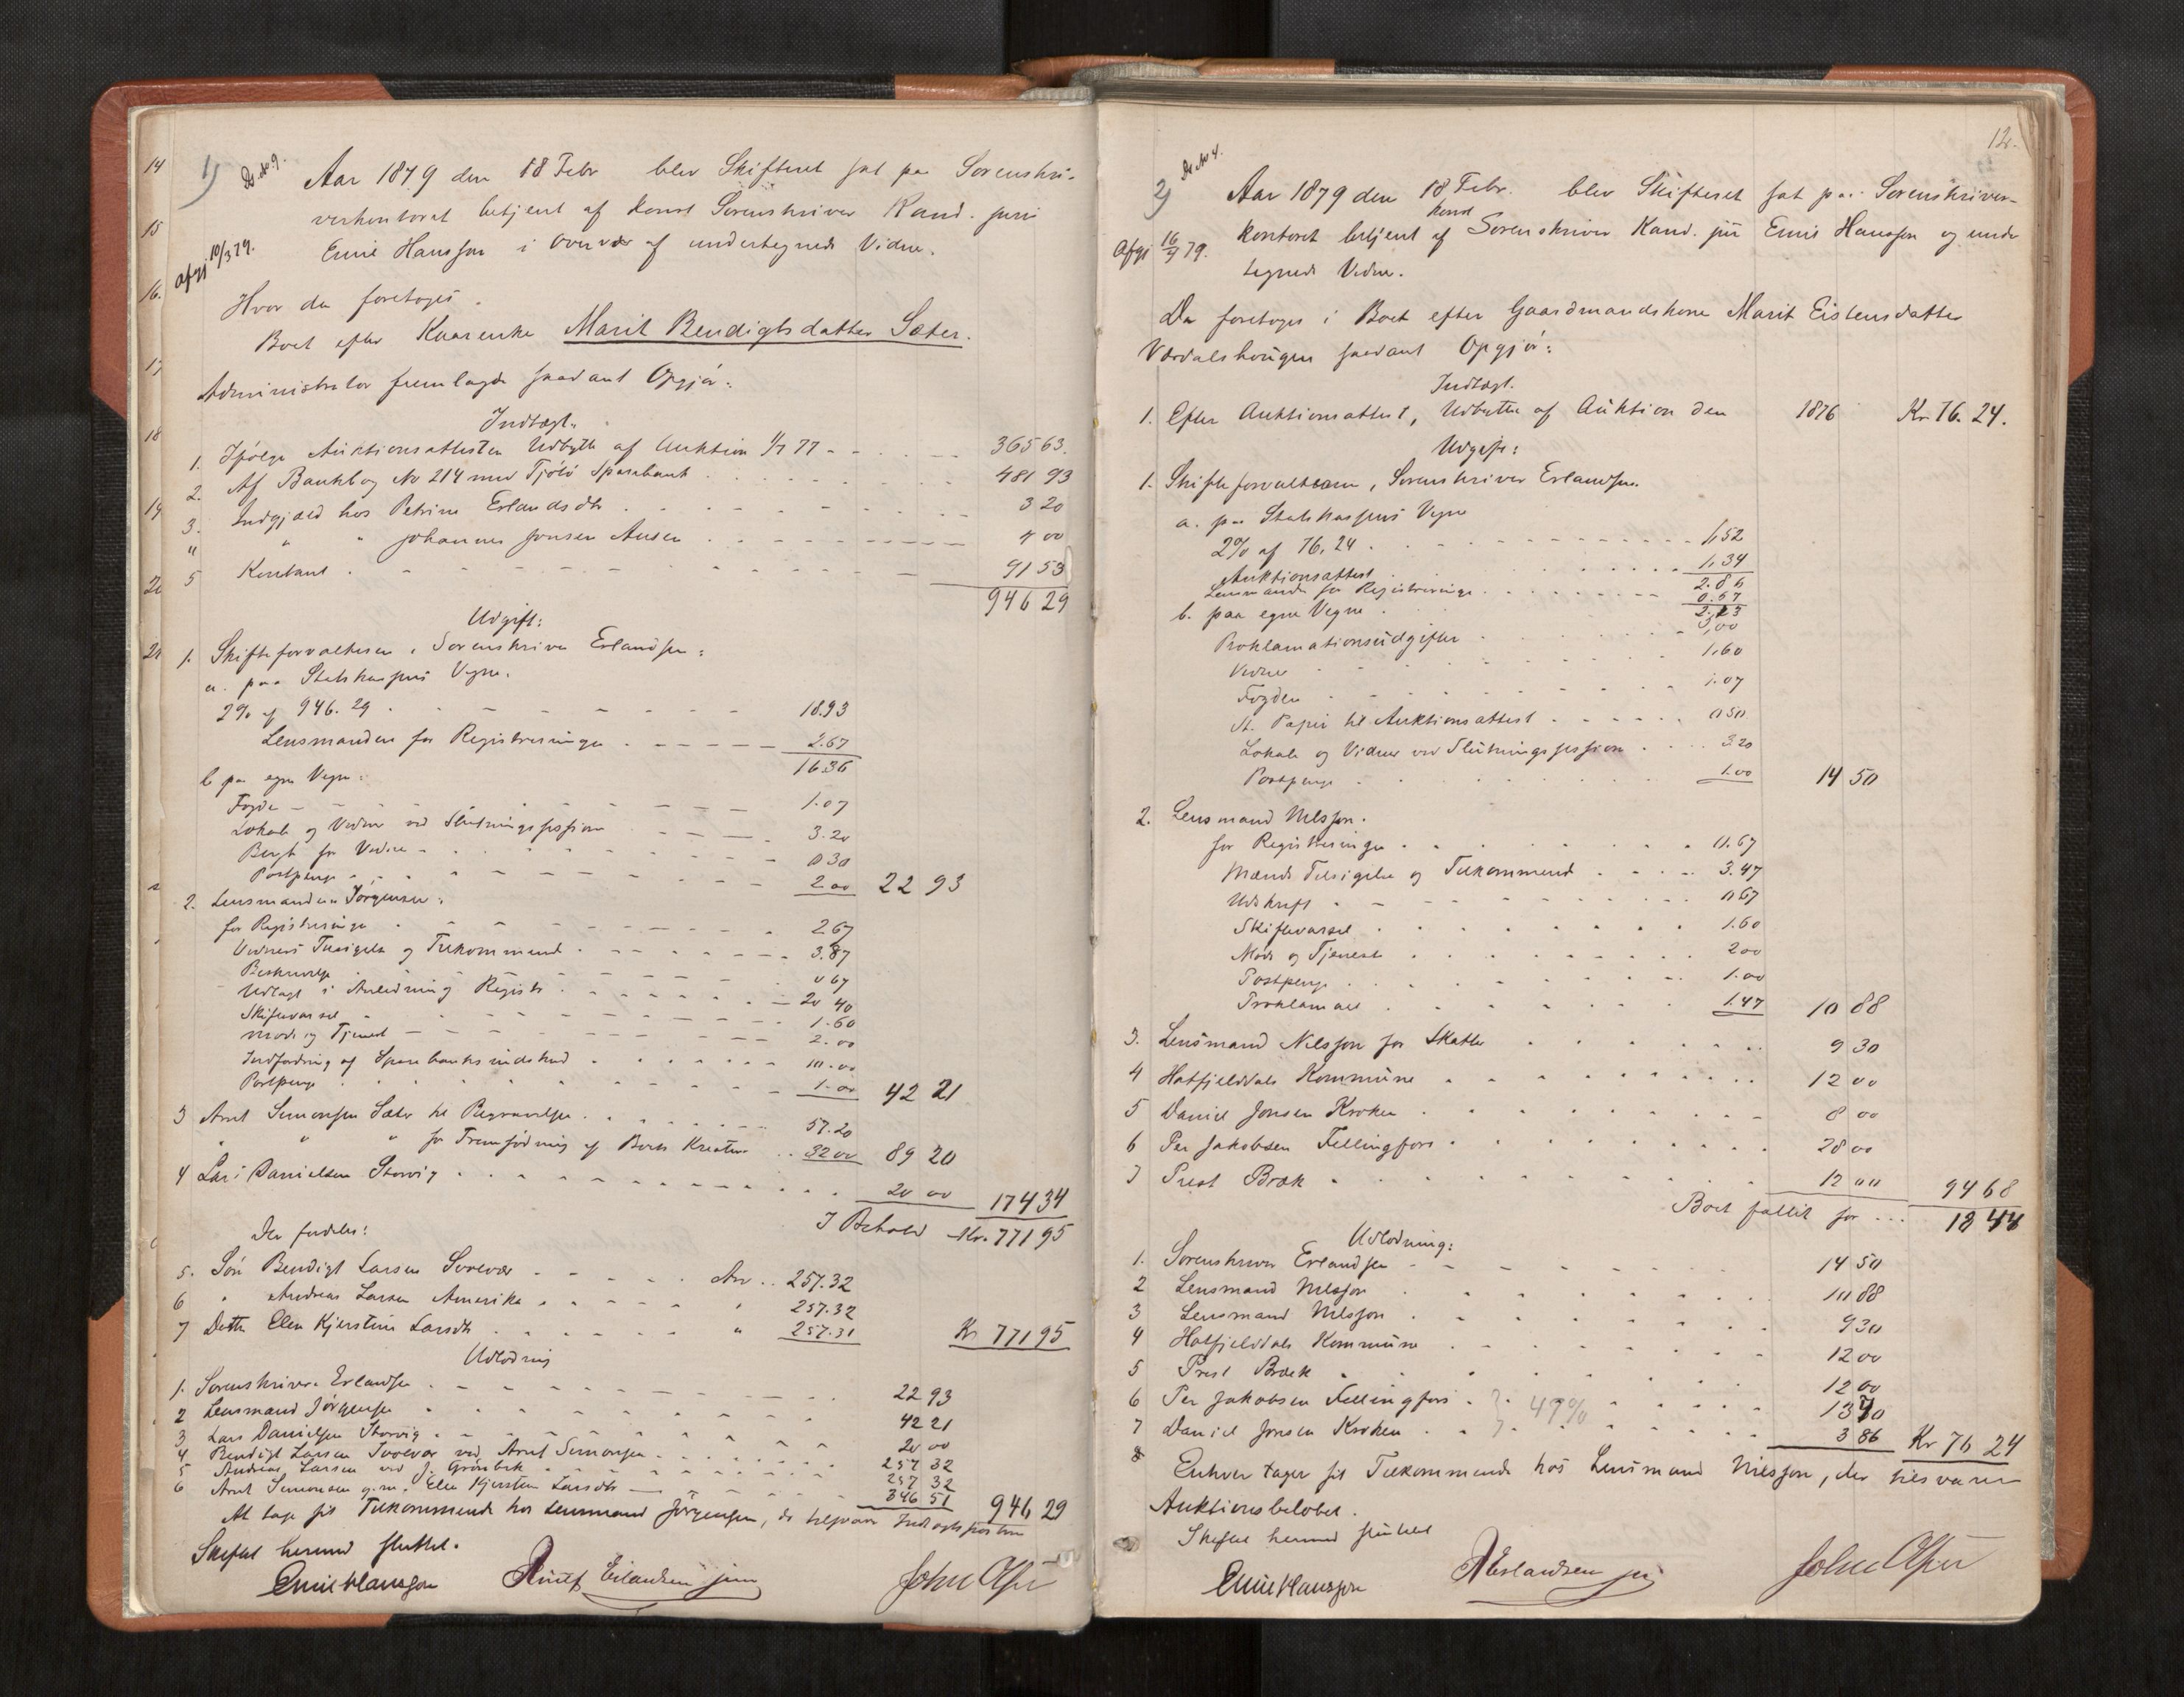 1)
Ds. No. 9.
Aar 1879 den 18 Febr blev Skifteret sat paa Sorenskri-
verkontoret betjent af konst Sorenskriver Kand. juris
Emil Hansson i Overvær af undertegnede Vidne.
Afgj 10/3 79.
Hvor da foretoges.
Boet efter Kaarenke Marit Bendigtsdatter Sæter.
Administrator fremlagde saadant Opgjør:
Indtægt.
1. Ifølge Auktionsattesten Udbytte af Auktion 1/7 77 365 63.
2. Af Bankbog No 214 med Tjøtø Sparebank 481 93
3. Indgjæld hos Petrine Erlandsdtr 3 20
" " " Johannes Jonsen Ausen 4 00
5 Kontant 91 53
946 29
Udgift:
1. Skifteforvalteren, Sorenskriver Erlandsen:
a. paa Statskassens Vegne.
2% af 946.29 18.93
Lensmanden for Registreringen 2.67
16.36
b paa egne Vegne:
Fogden 1.07
Lokale og Vidner ved Slutningssession 3.20
for Vidne 0 30
Postpenge 2.00 22 93
2. Lensmanden Jørgensen:
for Registreringen 2.67
Vidners Tilsigelse og Tilkommende 3.87
Beskrivelse 0 67
Udlagt i Anledning Registr 20 40
Skiftevarsel 1.60
Møde og Tjenest 2.00
Indfordring af Sparebanksindskud 10.00
Postpenge 1.00 42 21
3 Arnt Simonsen Sæter til Begravelsen 57.20
" " " for Fremfødning af Boets Kreature 32 00 89 20
4 Lars Danielsen Storvig 20 00 174 34
I Behold Kr. 771 95
Der fordeles:
5. Søn Bendigt Larsen Arv 257.32
6 " Andreas Larsen Amerika " 257.32
7 Datter Elen Kjerstine Larsdtr " 257.31 Kr 771 95
Udlodning
1. Sorenskriver Erlandsen 22 93
2 Lensmand Jørgensen 42 21
3 Lars Danielsen Storvig 20 00
4 Bendigt Larsen ved Arnt Simonsen 257 32
5 Andreas Larsen ved J. Grønbek 257 32
6 Arnt Simonsen g.m. Elen Kjerstine Larsdtr 346 51 946 29
At tage sit Tilkommende hos Lensmand Jørgensen, der tilsvarer Indtægtsposterne
Skiftet hermed sluttet.
Emil Hansson Erlandsen jun John Olsen
12.
2)
Ds No 4.
Aar 1879 den 18 Febr. blev Skifteret sat paa Sorenskriver-
kontoret betjent af konst Sorenskriver Kand. jur Emil Hansson og under
tegnede Vidne.
Afgj 16/4 79.
Da foretoges i Boet efter Gaardmandskone Marit Eistensdatter
Vardalshaugen saadant Opgjør:
Indtægt.
1. Efter Auktionsattest, Udbytte af Auktion den 1876 Kr 76.24.
Udgift:
1. Skifteforvalteren, Sorenskriver Erlandsen.
a. paa Statskassens Vegne
2% af 76,24 1,52
Auktionsattest 1,34
2.86
Lensmanden for Registreringen 0.67
b. paa egne Vegne 2.13
Proklamationsudgifter 3,00
Vidne 1,60
Fogden 1.07
St. Papir til Auktionsattest 0 50
Lokale og Vidner ved Slutningssession 3.20
Postpenge 1.00 14 50
2. Lensmand Nilsson.
for Registreringen 0.67
Mænds Tilsigelse og Tilkommend 3.47
Udskrift 0 67
Skiftevarsel 1.60
Møde og Tjeneste 2 00
Postpenge 1.00
Proklamaet 1.47 10 88
3. Lensmand Nilsson for Skatter 9 30
4 Hatfjelddals Kommune 12 00
5 Daniel Jonsen Kroken 8 00
6 Per Jakobsen Fellingfors 28 00
7 Prest Bræk 12 00 94 68
Boet fallit for 18 44
Udlodning:
1. Sorenskriver Erlandsen 14 50
2 Lensmand Nilsson 10 88
3 Lensmand Nilsson 9 30
4 Hatfjelddals Kommune 12 00
5 Prest Bræk 12 00
6 Per Jakobsen Fellingfors 47% 13 70
7 Daniel Jonsen Kroken 3 86 Kr 76 24
8 Enhver tager sit Tilkommende hos Lensmand Nilsson, der tilsvarer
Auktionsbeløbet.
Skiftet hermed sluttet
Emil Hansson Erlandsen jun John Olsen